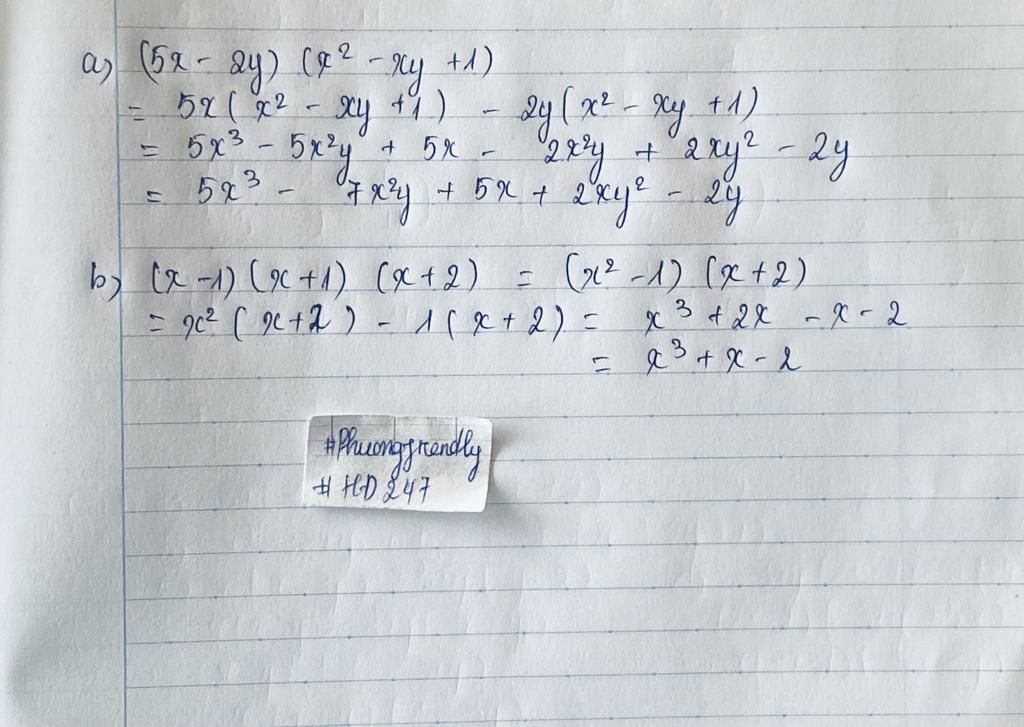 a) (5x - 2y) (x² - xy + 1)
= 5x ( x² - xy + 1 ) - 2y ( x² - xy + 1)
= 5x³ - 5x²y + 5x - 2x²y + 2xy² - 2y
= 5x³ - 7x²y + 5x + 2xy² - 2y
b) (x - 1) (x + 1) (x + 2) = (x² - 1) (x + 2)
= x² ( x + 2 ) - 1 ( x + 2 ) = x³ + 2x - x - 2
= x³ + x - 2
#Phuongfrendly
# HD 247